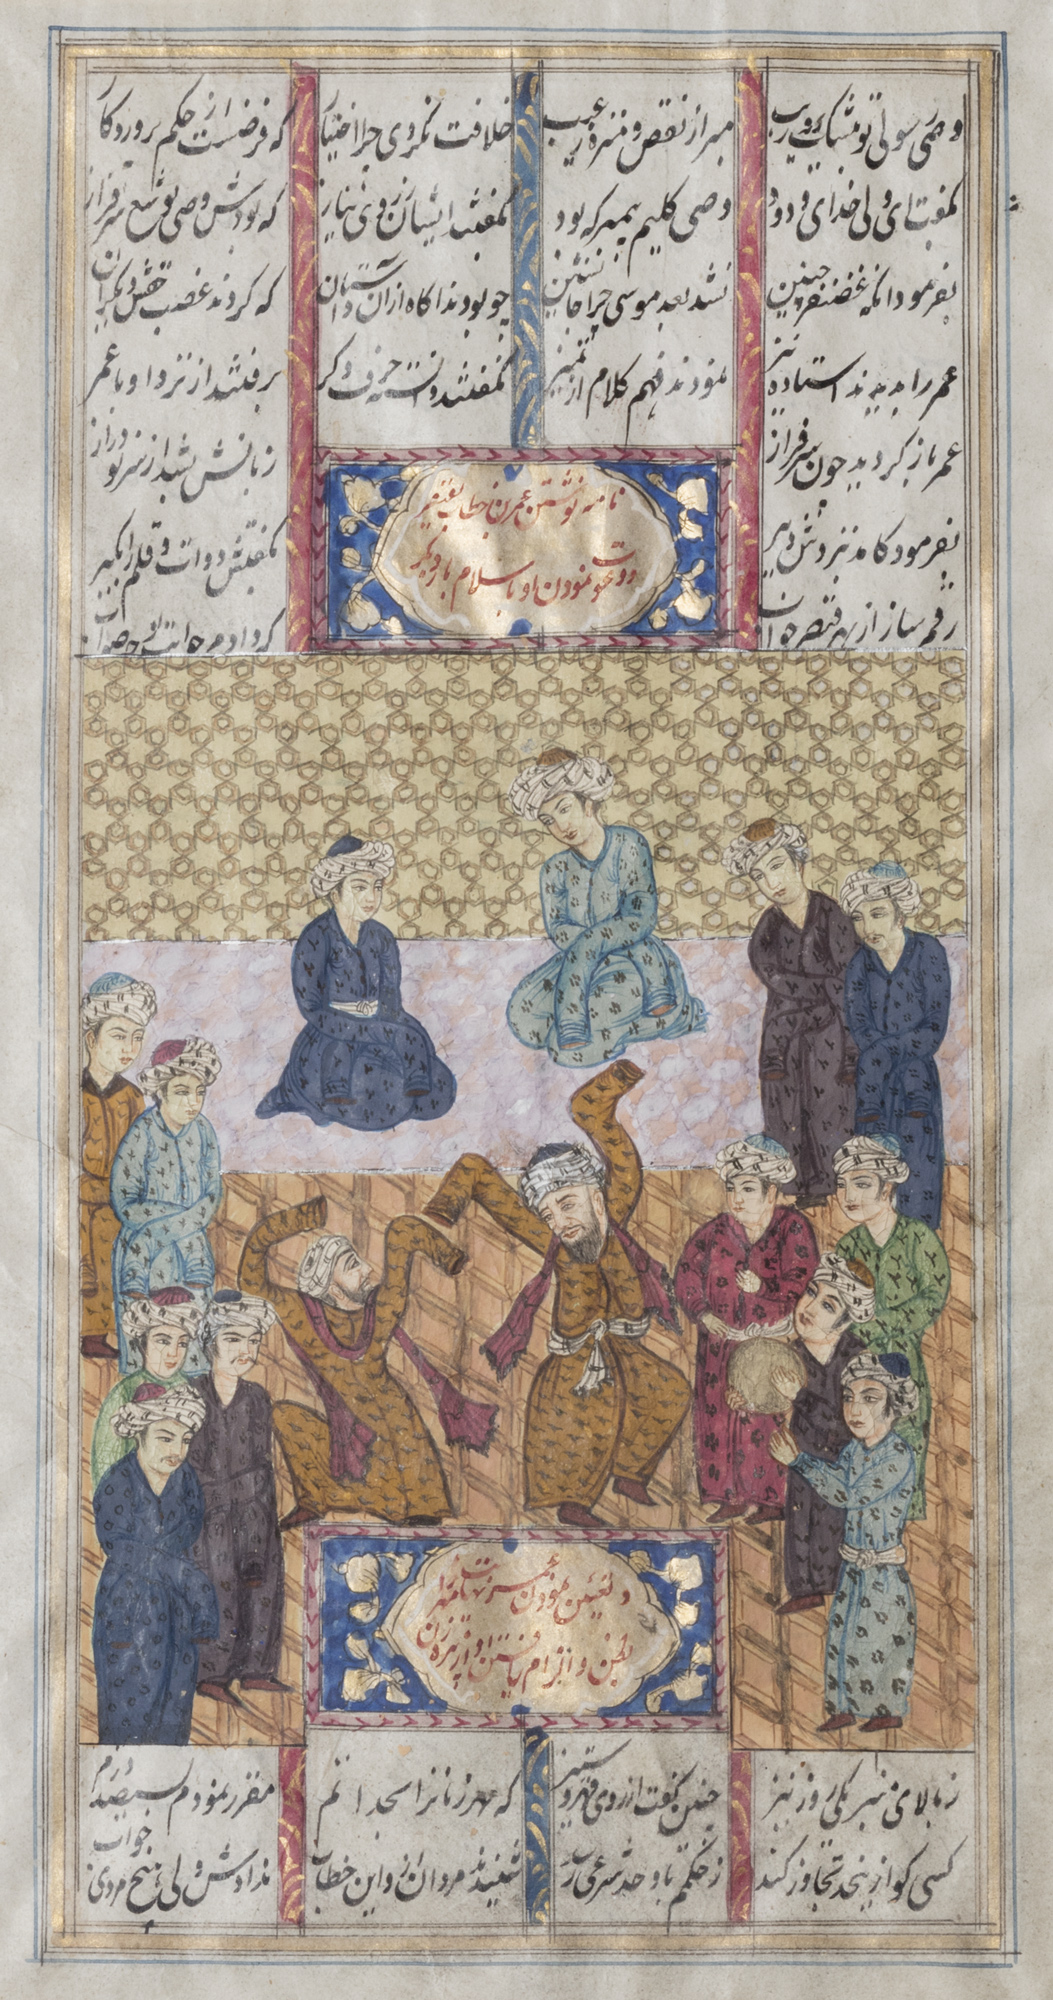 وصی رسولی تو بیشک و ریب مبرا ز نقص و منزه ز عیب خلافت نمودی چرا اختیار که فرضست از حکم پروردکار
بگفت ای ولی خدای ودود وصی کلیم پیمبر که بود بگفتند ایشان ز روی نیاز که بودش وصی یوشع سرفراز
بفرمود آنگه غضنفر چنین نشد بعد موسی چرا جانشین چو بودند آکاه از آن داستان که کردند غصب حقش دیگران
عمر را بدیدند استاده نیز نمودند فهم کلام از تمیز بگفتند دانسته حرف دگر برفتند از نزد او با عمر
عمر باز گردید چون سرفراز زبانش بشد از سر نو دراز
بفرمود کامد بنزدش دبیر بگفتش دوات و قلم را بگیر
رقم ساز از بهر قیصر جواب که دادم
نامه نوشتن عمر بن خطاب بقیصر
و دعوت نمودن او باسلام بار دیگر
و تعیین نمودن عمر
و الزام یافتن او از پیره زن
ز بالای منبر یکی روز نیز چنین گفت از روی قهر و ستیز که مهر زنانرا بجد اتم مقرر نمودم بسیصد درم
کسی کو ازینحد تجاوز کند ز حکمم باو حد شرعی رسد شنیدند مردان ازو این خطاب ندادش ولی هیچ مردی جواب